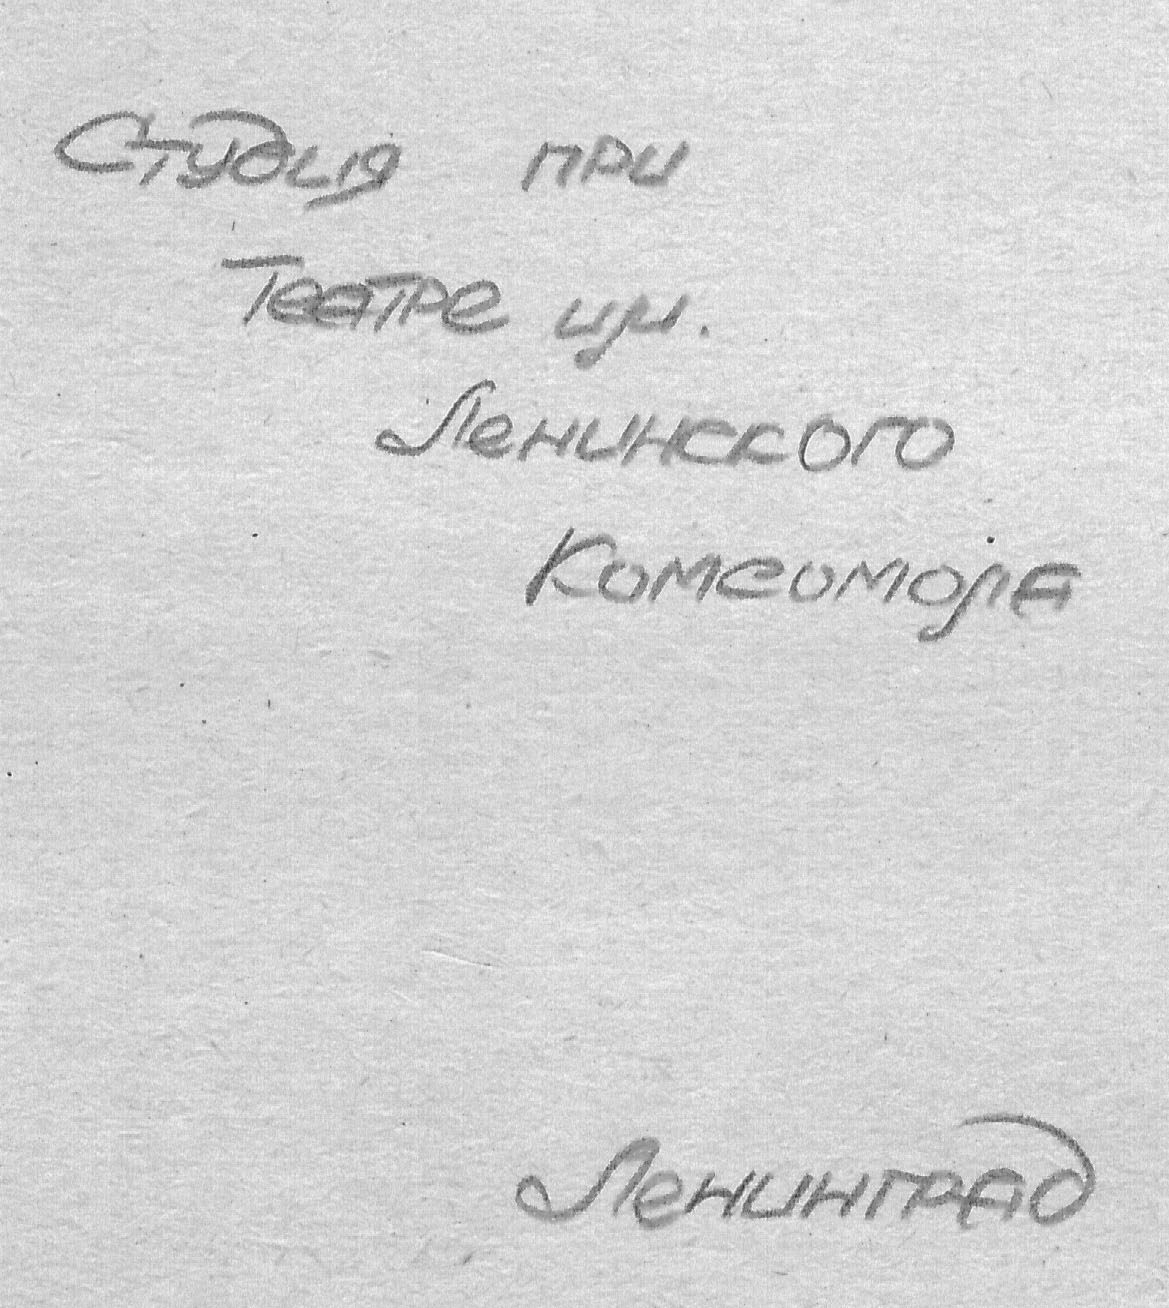 Студия при
Театре им.
Ленинского
Комсомола
Ленинград